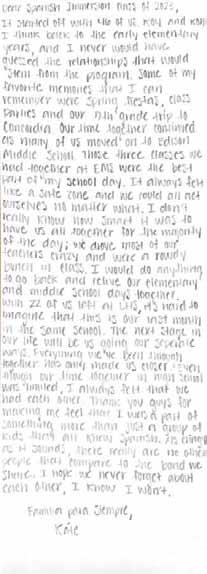 Dear Spanish Immersion class of 2023,
It started off with 40 of us. Kdg and
I think back to the early elementary
years, and I never would have
guessed the relationships that would
stem from the program. Some of my
favorite memories that I can
remember were Spring fiestas, class
parties and our 4th grade trip to
Concordia. Our time together continued
as many of us moved on to Edison
Middle School. Those three classes we
had together at EMS were the best
part of my school day. It always felt
like a safe zone and we could all act
ourselves no matter what. I don't
really know how smart it was to
have us all together for the majority
of the day; we drove most of our
teachers crazy and were a rowdy
bunch in class. I would do anything
to go back and relive our elementary
and middle school days together.
With 22 of us left at LHS, it's hard to
imagine that this is our last month
in the same school. The next stage in
our life will be us going our separate
ways. Everything we've been through
together has only made us closer. Even
though our time together in high school
was limited, I always felt that we
had each other. Thank you guys for
making me feel that I was a part of
something more than just a group of
kids that all knew Spanish. As cringy
as it sounds, there really are no other
people that compare to the bond we
share. I hope we never forget about
each other, I know I won't.
Familia para siempre,
Kate